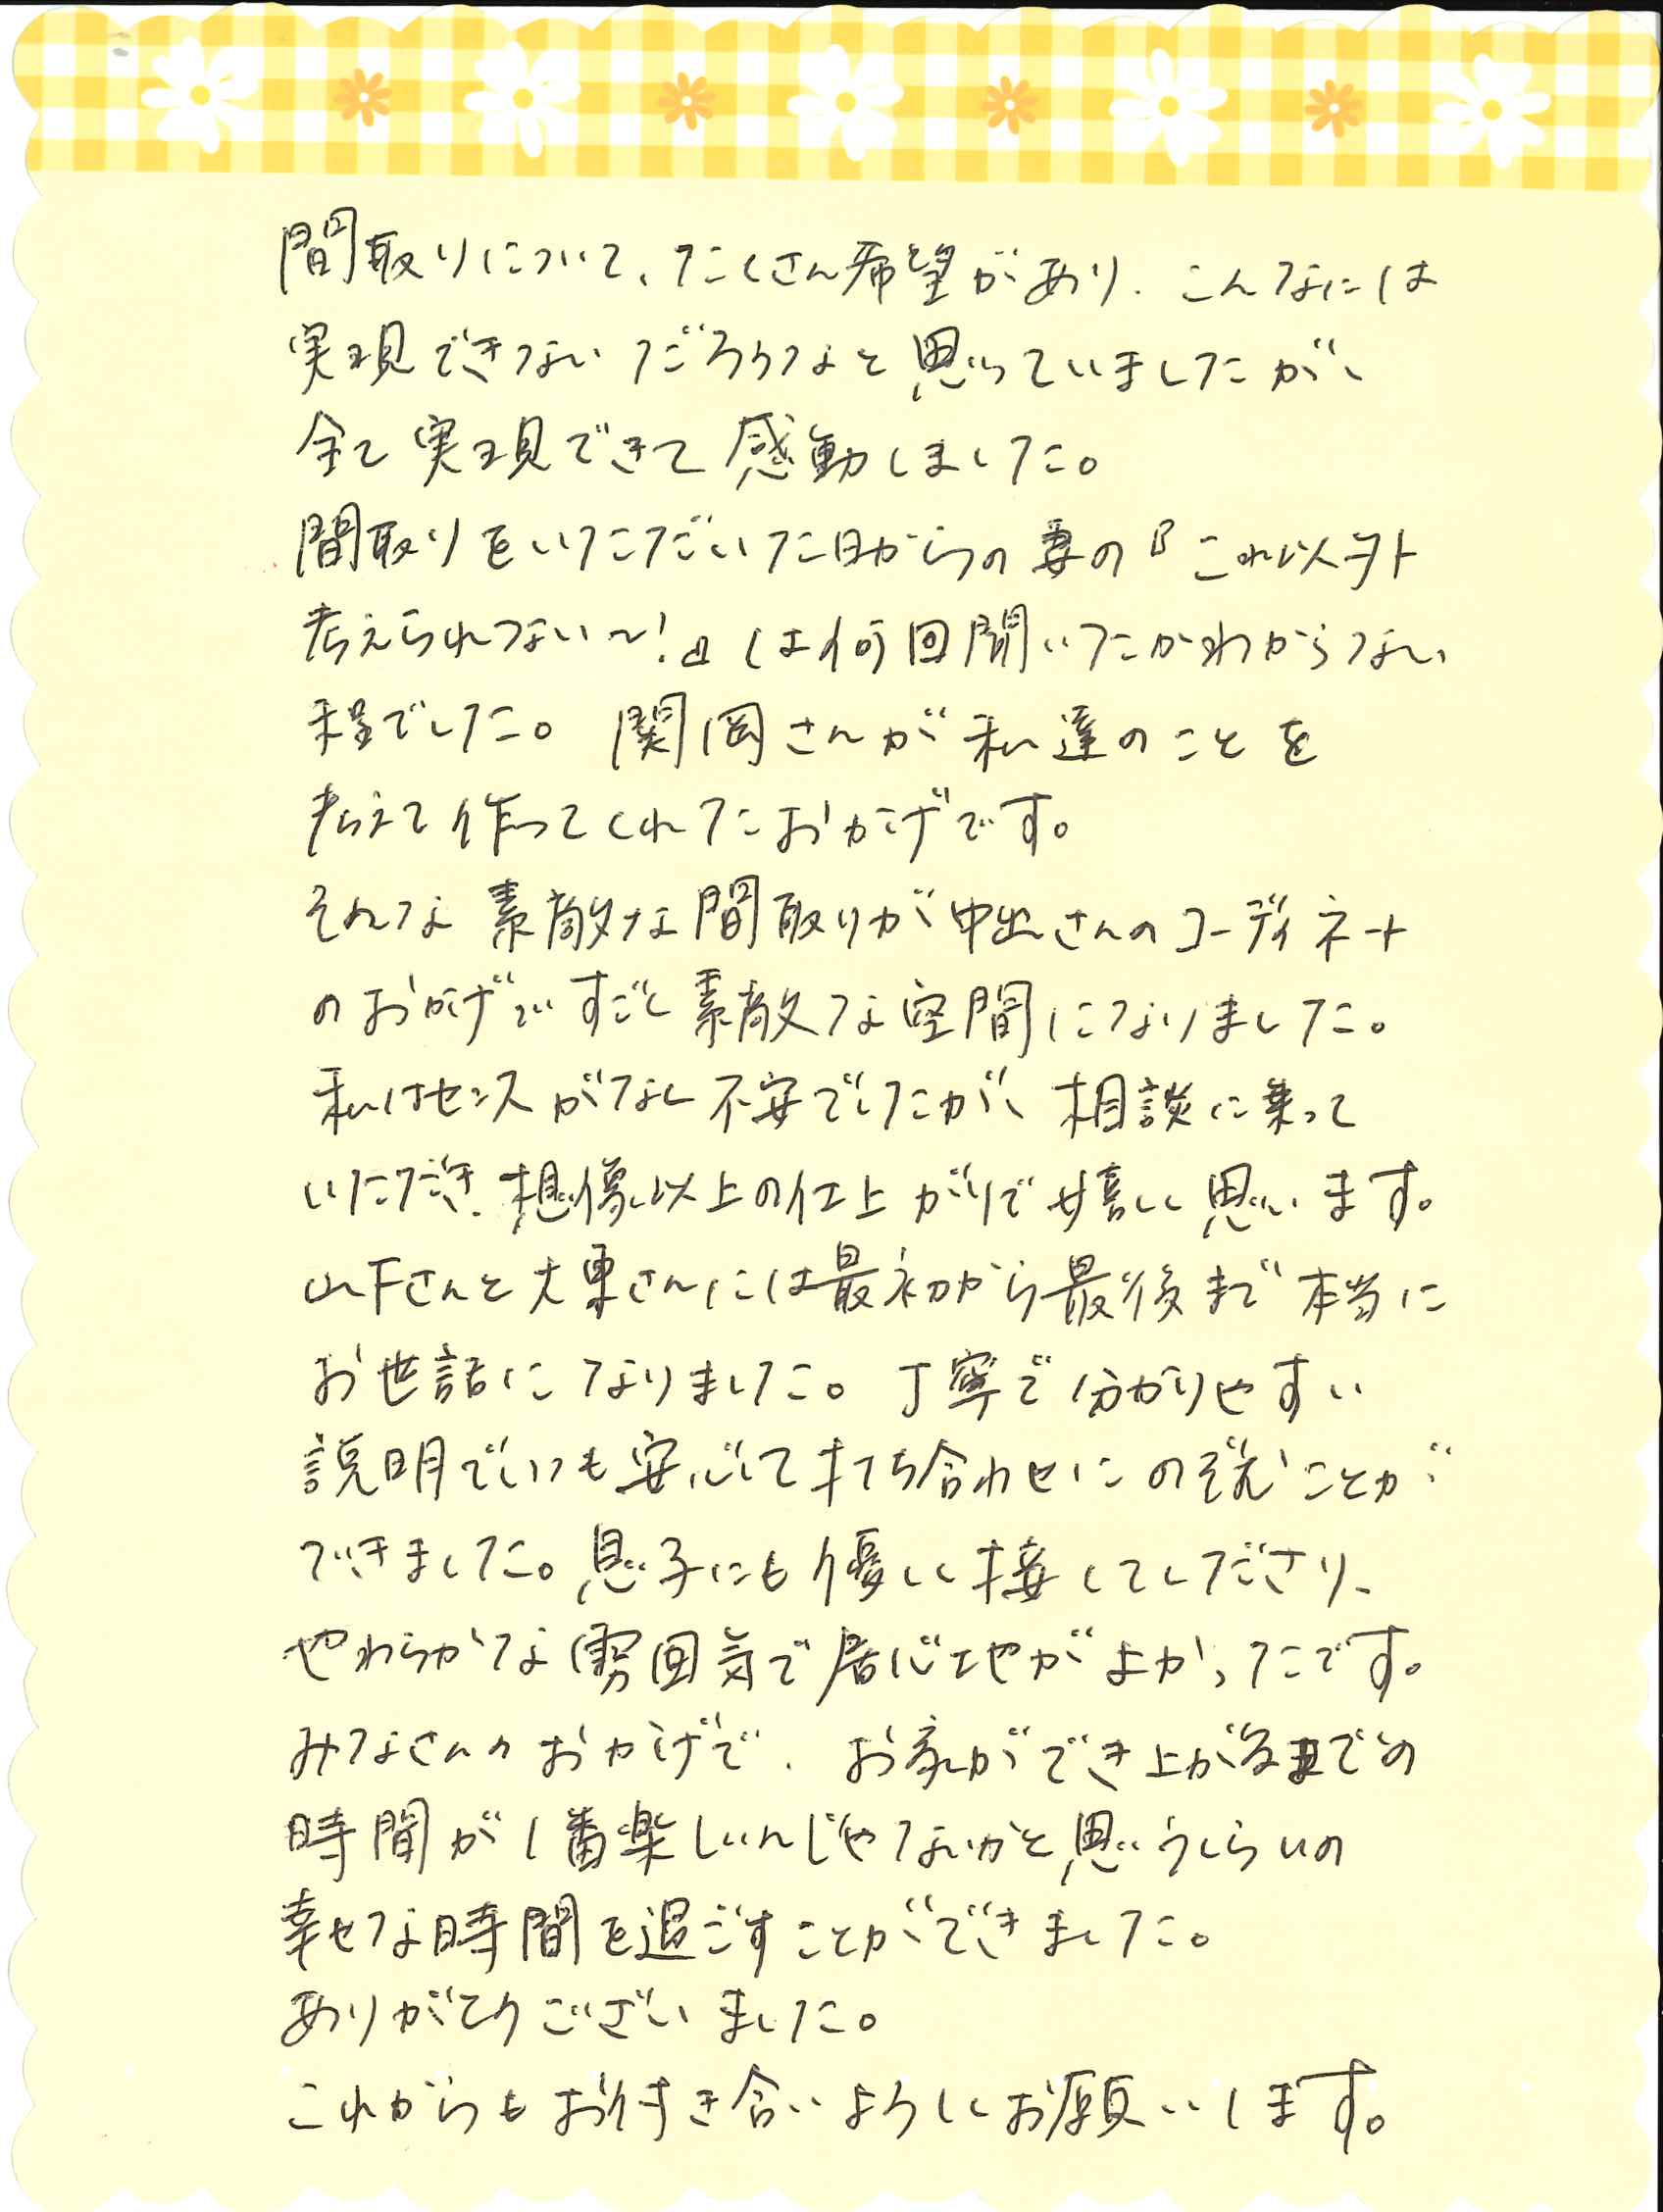 間取りについて、たくさん希望があり、こんなには
実現できないだろうなと思っていましたが、
全て実現できて感動しました。
間取りをいただいた日からの妻の『これ以外
考えられない〜!』は何回聞いたかわからない
程でした。関岡さんが私達のことを
考えて作ってくれたおかげです。
そんな素敵な間取りが中出さんのコーディネート
のおかげですごく素敵な空間になりました。
私はセンスがなく不安でしたが、相談に乗って
いただき、想像以上の仕上がりで嬉しく思います。
山下さんと大東さんには最初から最後まで本当に
お世話になりました。丁寧で分かりやすい
説明でいつも安心して打ち合わせにのぞむことが
できました。息子にも優しく接してくださり、
やわらかな雰囲気で居心地がよかったです。
みなさんのおかげで、お家ができ上がるまでの
時間が1番楽しいんじゃないかと思うくらいの
幸せな時間を過ごすことができました。
ありがとうございました。
これからもお付き合いよろしくお願いします。